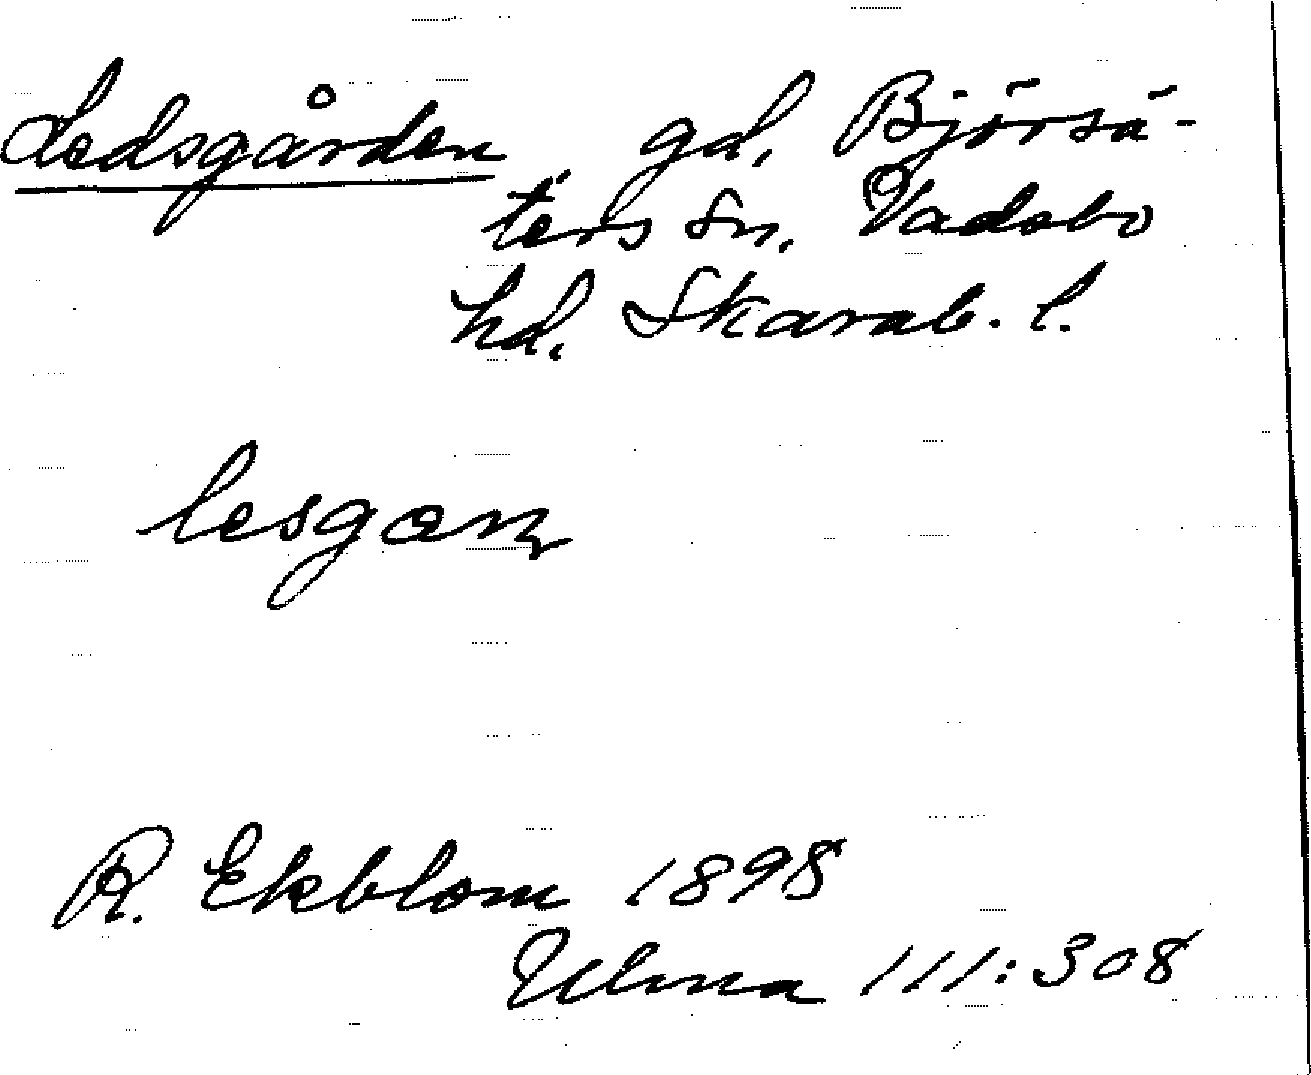 Ledsgården gd, Björsä-
ters sn, Vadsbo
hd, Skarab. l.
R. Ekblom 1898
Ulma 111:308